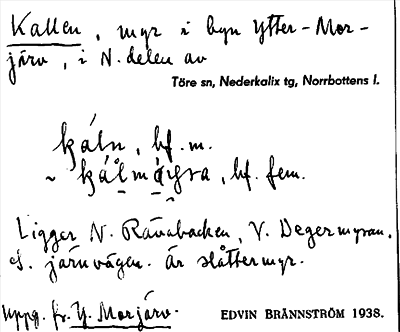 Kallen, myr i byn Ytter-Mor-
järv, i N. delen av
Töre sn, Nederkalix tg, Norrbottens l.
káln, bf. m.
~ kålmýra, bf. fem.
Ligger N. Rävabacken, V. Degermyran,
S. järnvägen. Är slåttermyr.
Uppg. fr. Y. Morjärv.
EDVIN BRÄNNSTRÖM 1938.